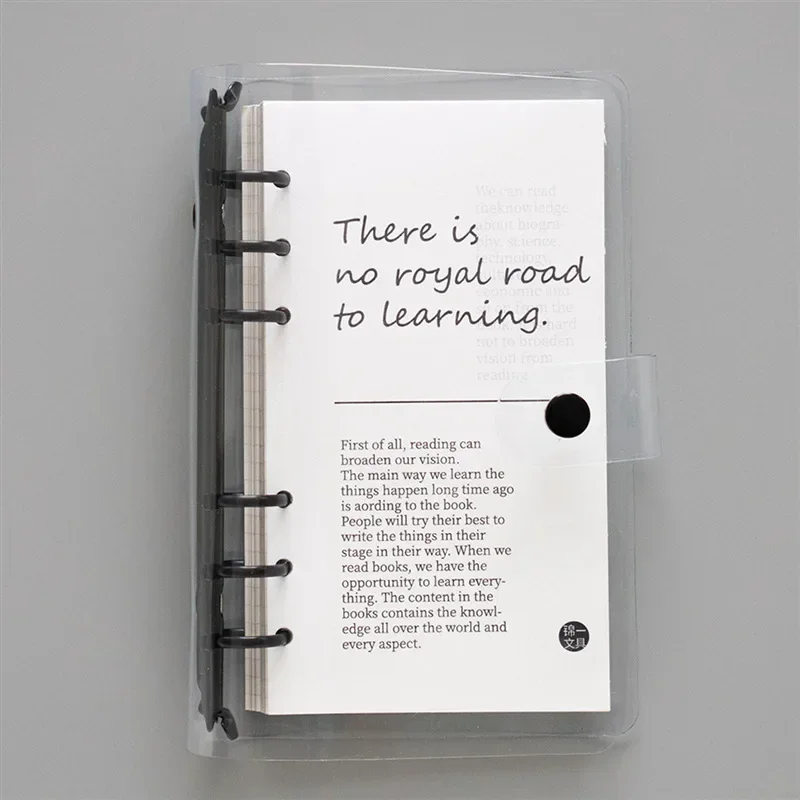 There is
no royal road
to learning.
We can read
theknowledge
about biogra-
phy, science,
technology,
economic and
hard
not to broaden
vision from
reading
First of all, reading can
broaden our vision.
The main way we learn the
things happen long time ago
is aording to the book.
People will try their best to
write the things in their
stage in their way. When we
read books, we have the
opportunity to learn every-
thing. The content in the
books contains the knowl-
edge all over the world and
every aspect.
锦一
文具